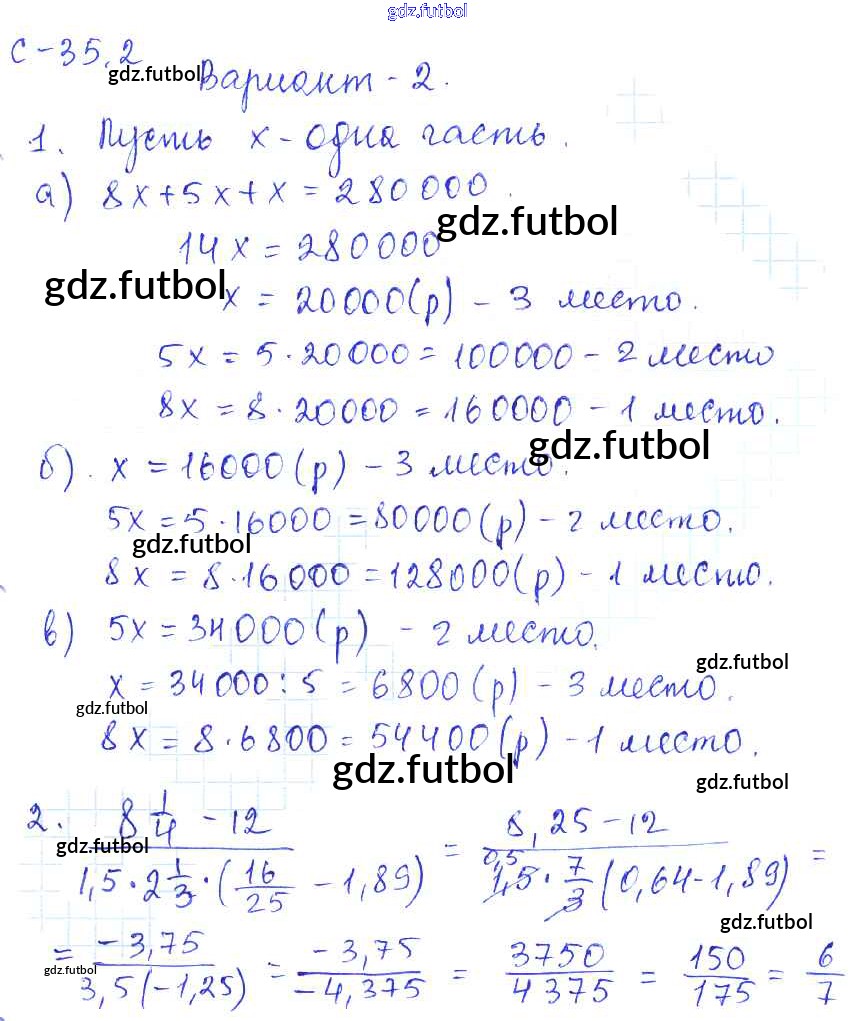 gdz.futbol
С-35.2
gdz.futbol
Вариант - 2.
1. Пусть x - одна часть.
а) 8x+5x+x = 280000.
gdz.futbol
14x = 280000
gdz.futbol
x = 20000(р) - 3 место.
5x = 5·20000 = 100000 - 2 место
8x = 8·20000 = 160000 - 1 место.
gdz.futbol
б). x = 16000(р) - 3 место.
5x = 5·16000 = 80000(р) - 2 место.
gdz.futbol
8x = 8·16000 = 128000(р) - 1 место.
в) 5x = 34000(р) - 2 место.
gdz.futbol
x = 34000:5 = 6800(р) - 3 место.
gdz.futbol
8x = 8·6800 = 54400(р) - 1 место.
gdz.futbol
gdz.futbol
2. (8 1/4 - 12)/(1,5·2 1/3·(16/25 - 1,89)) = (8,25 - 12)/(0,5 1,5·7/3(0,64-1,89)) =
gdz.futbol
gdz.futbol
= -3,75/3,5(-1,25) = -3,75/-4,375 = 3750/4375 = 150/175 = 6/7
gdz.futbol